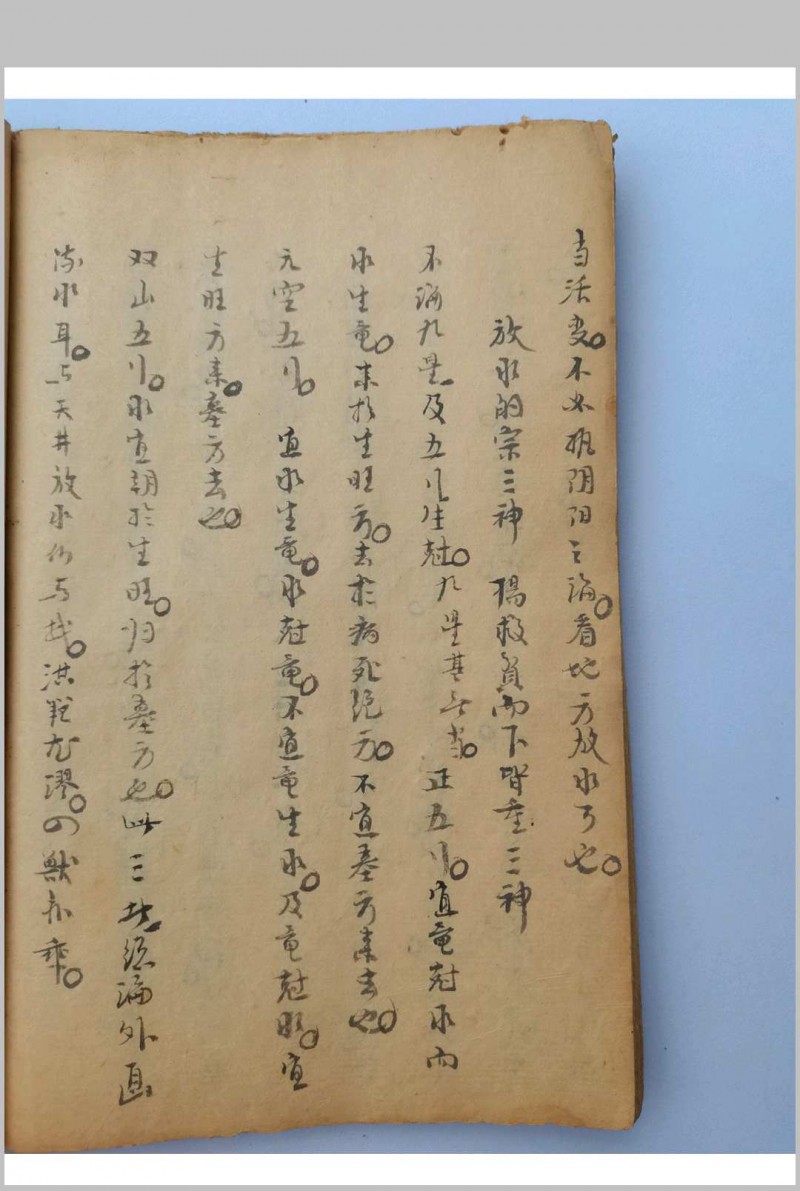 当活变。不必执阴阳之论。看地方放水可也。
放水的宗三神 杨救贫而下皆重三神
不论九星及五行生尅。九星甚无当。正五行。宜竜尅水而
水生竜。来於生旺方。去於病死绝方。不宜墓方来去也。
元空五行。 宜水生竜。水尅竜。不宜竜生水。及竜尅水。宜
生旺方来。墓方去也。
双山五行。水宜朝於生旺。归於墓方也。此三者。总论外面
流水耳。与天井放水仍与找。洪范尤谬。四兽亦乖。